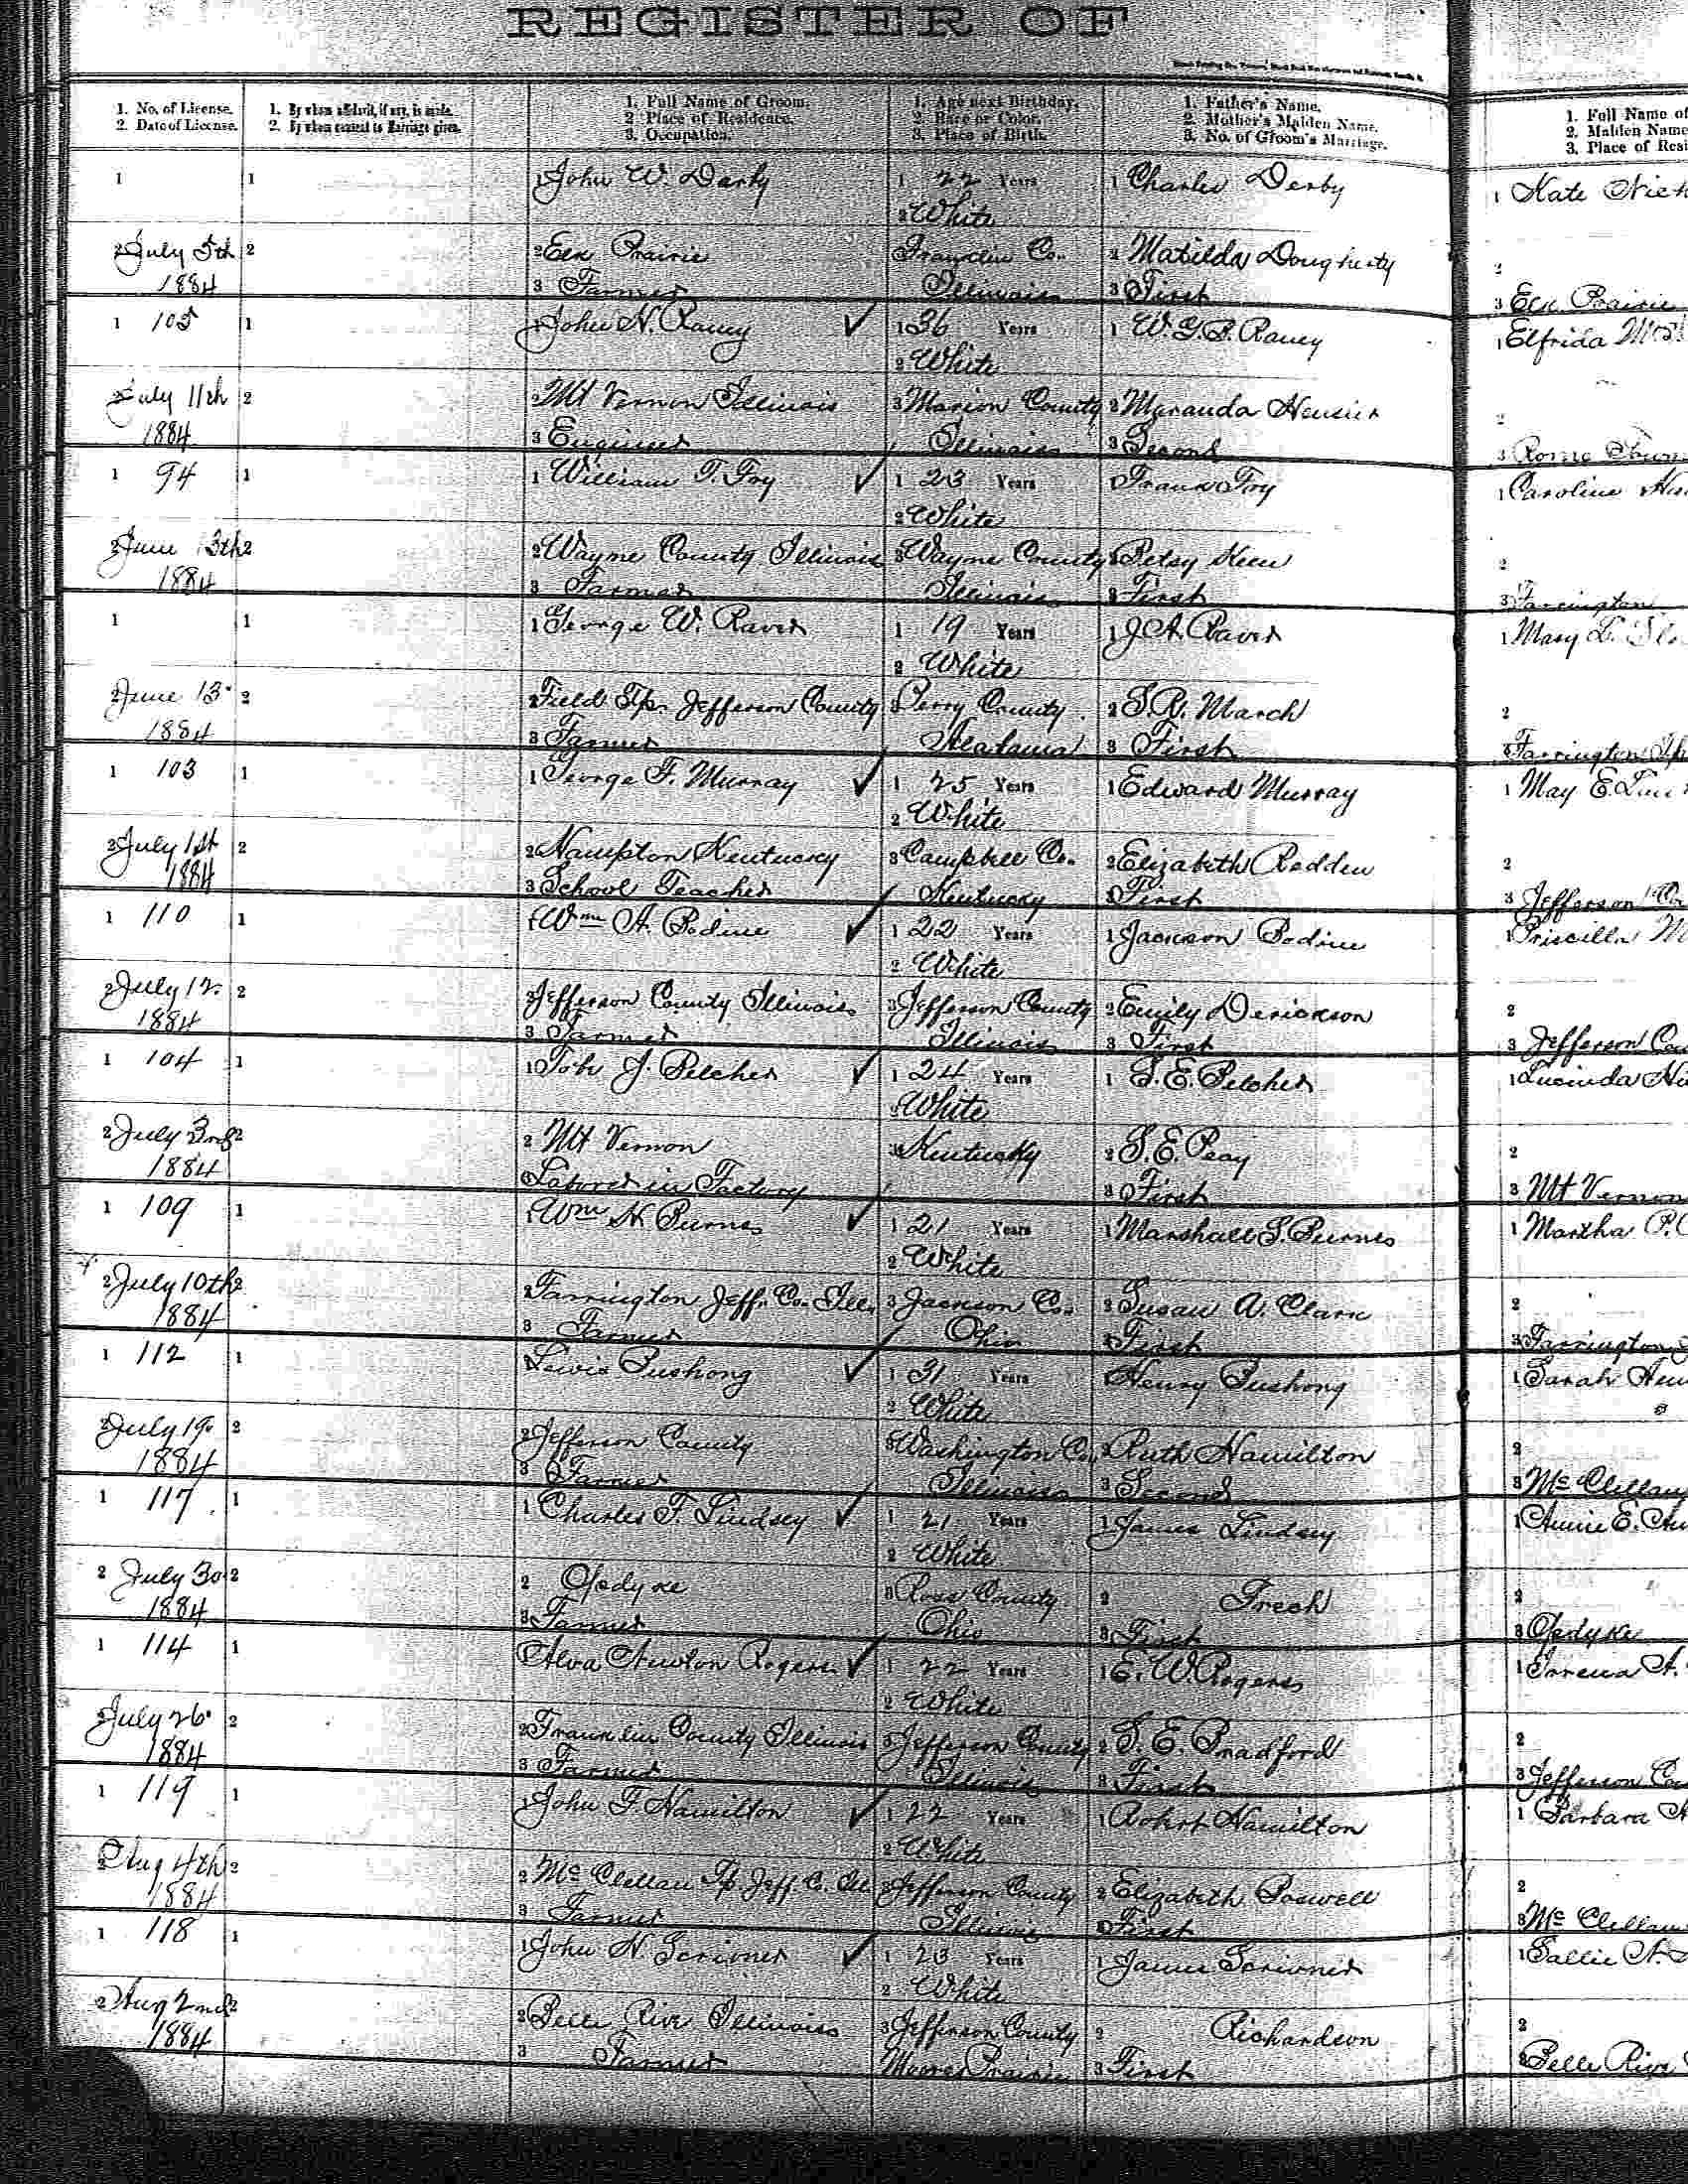 REGISTER OF
1. No. of License.
2. Date of License.
1. By whom affidavit, if any, is made.
2. By whom consent to Marriage given.
1. Full Name of Groom.
2. Place of Residence.
3. Occupation.
1. Age next Birthday.
2. Race or Color.
3. Place of Birth.
1. Father's Name.
2. Mother's Maiden Name.
3. No. of Groom's Marriage.
1. Full Name of
2. Maiden Name
3. Place of Resi
1 1 1 John W. Darby 1 22 Years 1 Charles Derby 1 Kate Nich
2 White
2 July 5th 2 2 Elk Prairie Franklin Co. 2 Matilda Dougherty 2
1884 3 Farmer Illinois 3 First 3 Elk Prairie
1 105 1 1 John N. Raney ✓ 1 36 Years 1 W. G. B. Raney 1 Elfrida
2 White
2 July 11th 2 2 Mt Vernon Illinois 3 Marion County 2 Muranda 2
1884 3 Engineer Illinois 3 Second 3 Rome
1 94 1 1 William T. Foy ✓ 1 23 Years 1 Frank Foy 1 Caroline
2 White
2 June 13th 2 2 Wayne County Illinois 3 Wayne County 2 Betsy Keen 2
1884 3 Farmer Illinois 3 First 3 Farrington
1 1 1 George W. Raver 1 19 Years 1 J. A. Raver 1 Mary L.
2 White
2 June 13 2 2 Field Tp. Jefferson County 3 Perry County 2 S. R. March 2
1884 3 Farmer Alabama 3 First 3 Farrington Tp
1 103 1 1 George F. Murray ✓ 1 25 Years 1 Edward Murray 1 May E.
2 White
2 July 1st 2 2 Hampton Kentucky 3 Campbell Co. 2 Elizabeth Redden 2
1884 3 School Teacher Kentucky 3 First 3 Jefferson Co
1 110 1 1 Wm A. Bodine ✓ 1 22 Years 1 Jackson Bodine 1 Priscilla M
2 White
2 July 12. 2 2 Jefferson County Illinois 3 Jefferson County 2 Emily Derickson 2
1884 3 Farmer Illinois 3 First 3 Jefferson Cou
1 104 1 1 Tob J. Pelcher ✓ 1 24 Years 1 S. E. Pelcher 1 Lucinda
2 White
2 July 3rd 2 2 Mt Vernon 3 Kentucky 2 S. E. Peay 2
1884 3 Laborer in Factory 3 First 3 Mt Vernon
1 109 1 1 Wm H. Burnes ✓ 1 21 Years 1 Marshall S. Burnes 1 Martha P.
2 White
2 July 10th 2 2 Farrington Jeff. Co. Ill. 3 Jackson Co. 2 Susan A. Clark 2
1884 3 Farmer Ohio 3 First 3 Farrington
1 112 1 Lewis Bushong ✓ 1 31 Years Henry Bushong 1 Sarah
2 White
2 July 19. 2 2 Jefferson County 3 Washington Co. 2 Ruth Hamilton 2
1884 3 Farmer Illinois 3 Second 3 Mc Clellan
1 117 1 1 Charles F. Lindsey ✓ 1 21 Years 1 James Lindsey 1 Annie E.
2 White
2 July 30 2 2 Opdyke 3 Ross County 2 Frech 2
1884 3 Farmer Ohio 3 First 3 Opdyke
1 114 1 Alva Newton Rogers ✓ 1 22 Years 1 E. W. Rogers 1 Lorena A.
2 White
2 July 26. 2 2 Franklin County Illinois 3 Jefferson County 2 S. E. Bradford 2
1884 3 Farmer Illinois 3 First 3 Jefferson Cou
1 119 1 1 John F. Hamilton ✓ 1 22 Years 1 Robert Hamilton 1 Barbara
2 White
2 Aug 4th 2 2 Mc Clellan Tp. Jeff. Co. Ill 3 Jefferson County 2 Elizabeth Boswell 2
1884 3 Farmer Illinois 3 First 3 Mc Clellan
1 118 1 1 John H. Scrivner ✓ 1 23 Years 1 James Scrivner 1 Sallie A.
2 White
2 Aug 2nd 2 2 Belle Rive Illinois 3 Jefferson County 2 Richardson 2
1884 3 Farmer Moores Prairie 3 First 3 Belle Rive